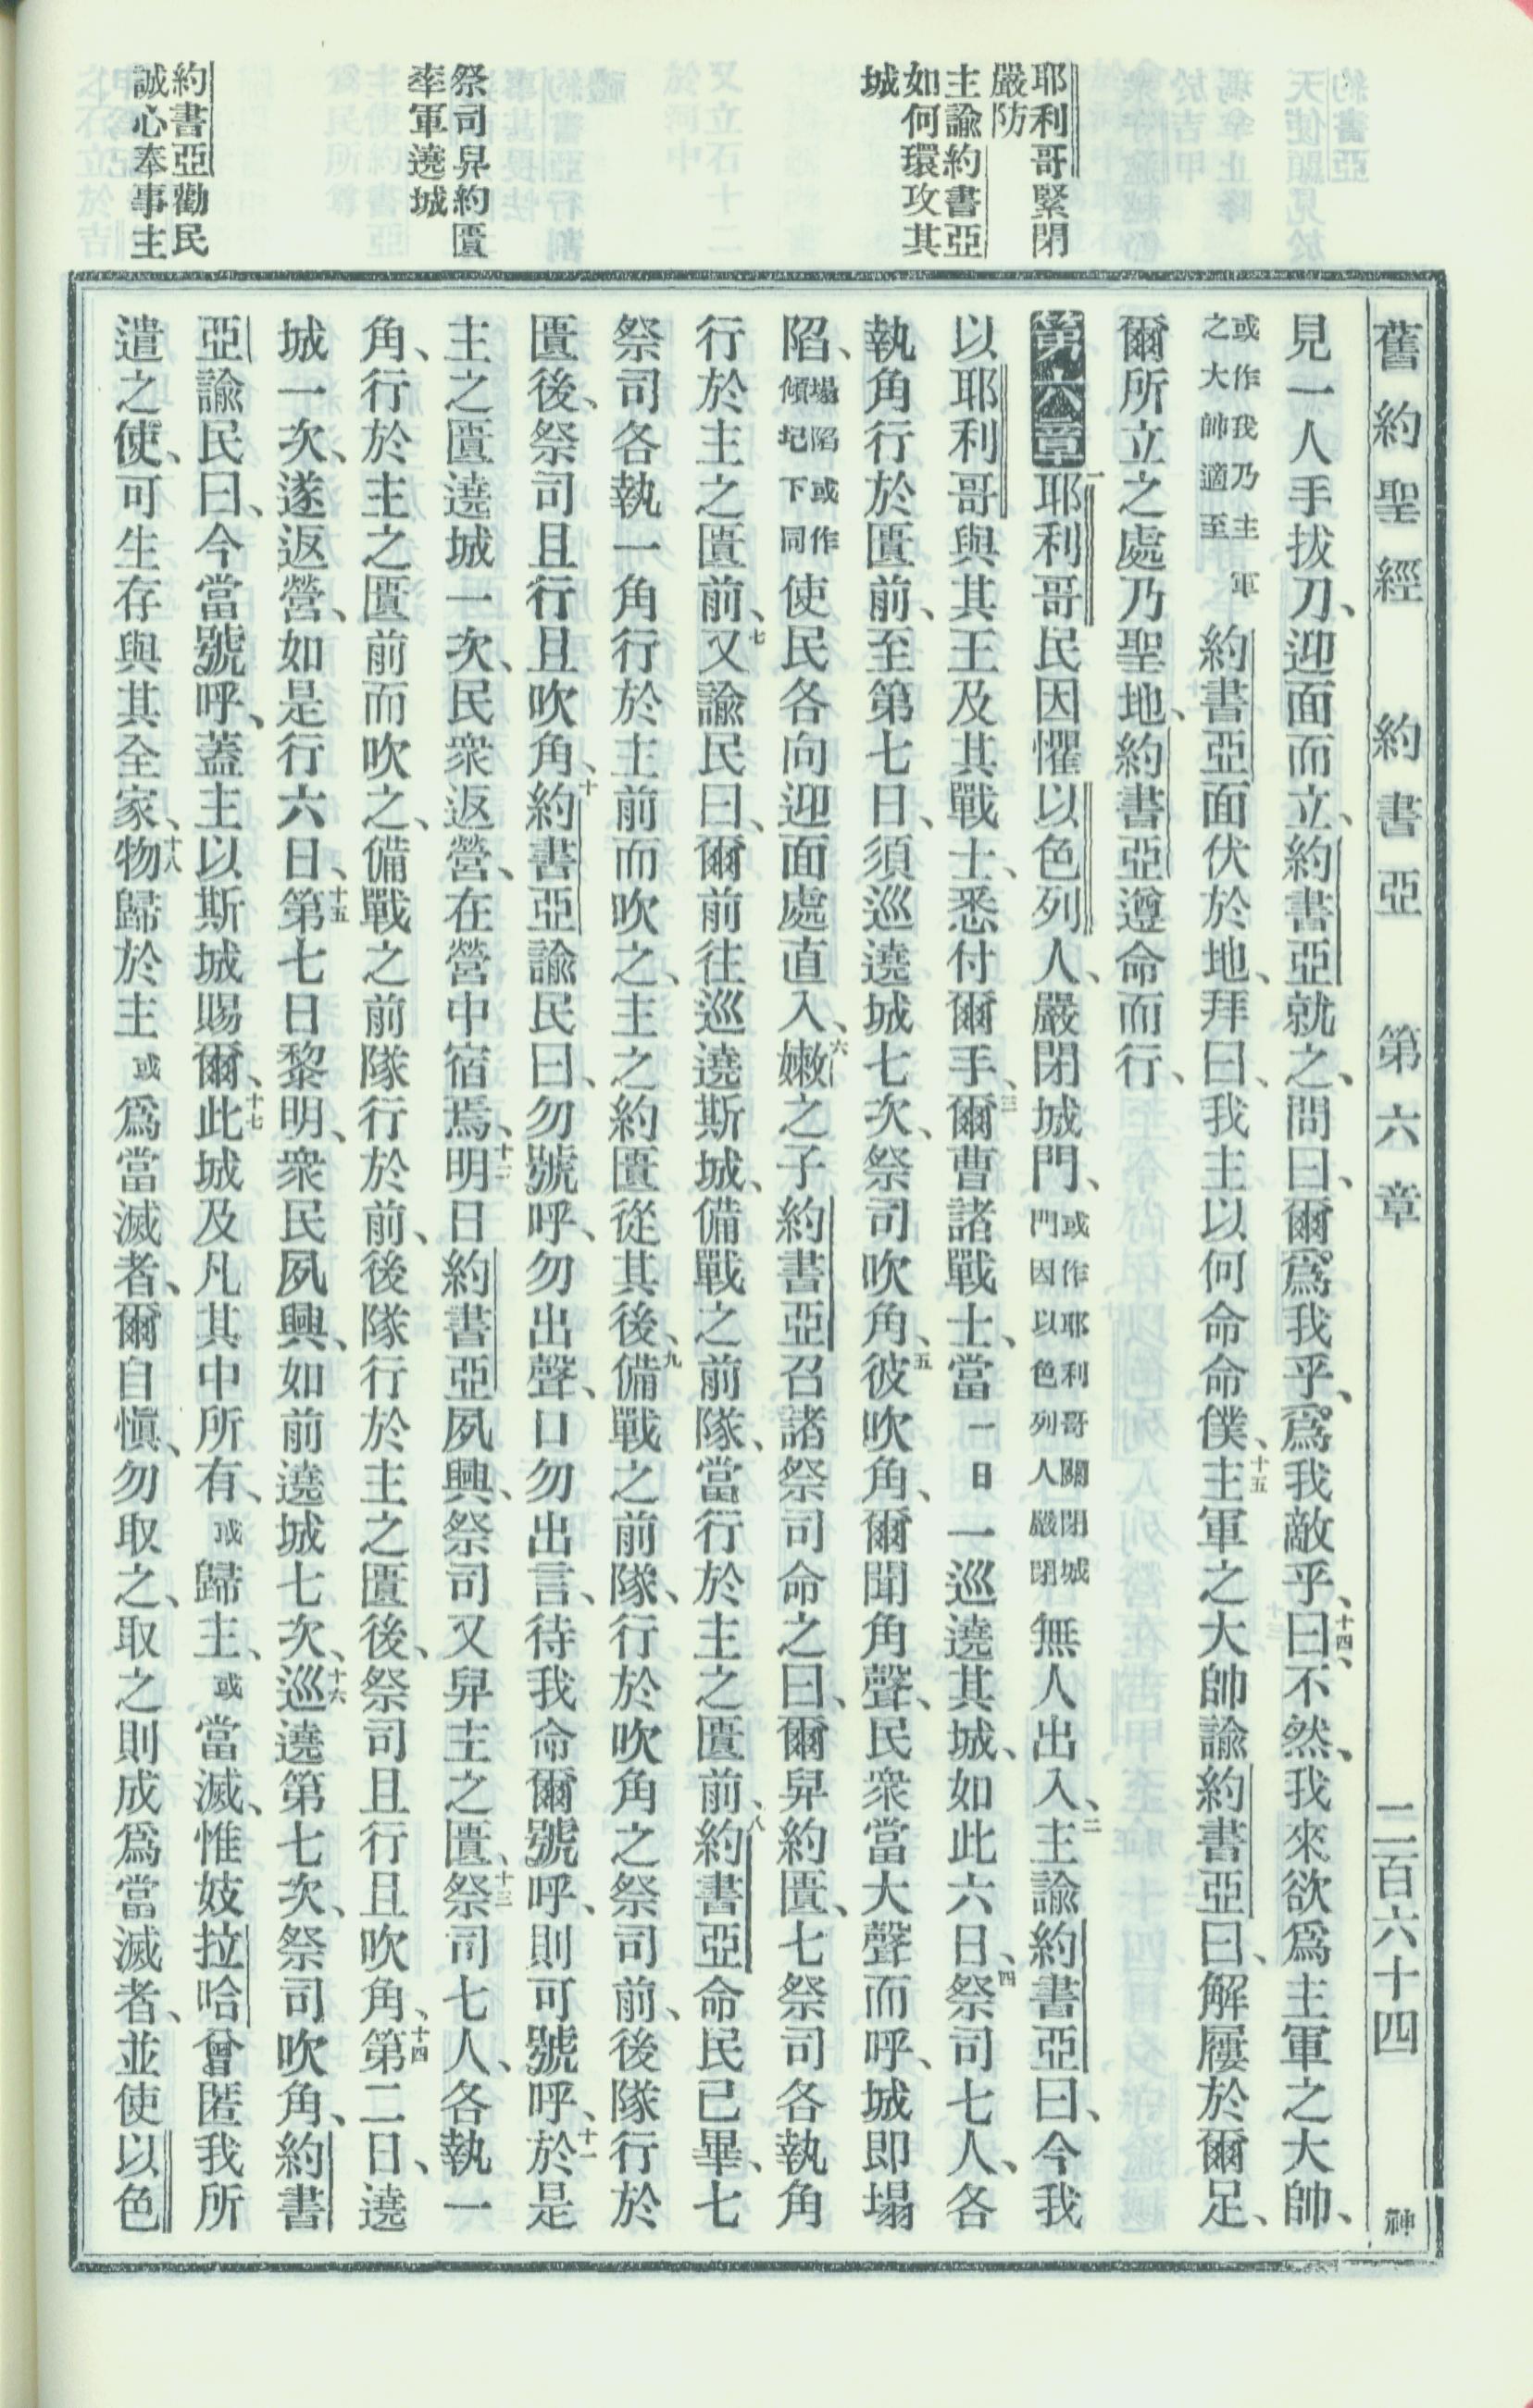 舊約聖經　約書亞　第六章　二百六十四　神
耶利哥緊閉
嚴防
主諭約書亞
如何環攻其
城
祭司舁約匱
率軍遶城
約書亞勸民
誠心奉事主
見一人手拔刀、迎面而立、約書亞就之、問曰、爾爲我乎、爲我敵乎、十四曰、不然、我來欲爲主軍之大帥、
或作我乃主軍之大帥適至 約書亞面伏於地、拜曰、我主以何命命僕、十五主軍之大帥諭約書亞曰、解屨於爾足、
爾所立之處乃聖地、約書亞遵命而行、
第六章 一耶利哥民因懼以色列人、嚴閉城門、或作耶利哥關閉城門因以色列人嚴閉 無人出入、二主諭約書亞曰、今我
以耶利哥與其王及其戰士、悉付爾手、三爾曹諸戰士、當一日一巡遶其城、如此六日、四祭司七人、各
執角行於匱前、至第七日、須巡遶城七次、祭司吹角、五彼吹角、爾聞角聲、民衆當大聲而呼、城即塌
陷、塌陷或作傾圮下同 使民各向迎面處直入、六嫩之子約書亞召諸祭司命之曰、爾舁約匱、七祭司各執角
行於主之匱前、七又諭民曰、爾前往巡遶斯城、備戰之前隊、當行於主之匱前、八約書亞命民已畢、七
祭司各執一角行於主前而吹之、主之約匱從其後、九備戰之前隊、行於吹角之祭司前、後隊行於
匱後、祭司且行且吹角、十約書亞諭民曰、勿號呼、勿出聲、口勿出言、待我命爾號呼、則可號呼、十一於是
主之匱遶城一次、民衆返營、在營中宿焉、十二明日約書亞夙興、祭司又舁主之匱、十三祭司七人、各執一
角、行於主之匱前而吹之、備戰之前隊行於前、後隊行於主之匱後、祭司且行且吹角、十四第二日、遶
城一次、遂返營、如是行六日、十五第七日黎明、衆民夙興、如前遶城七次、十六巡遶第七次、祭司吹角、約書
亞諭民曰、今當號呼、蓋主以斯城賜爾、十七此城及凡其中所有、或歸主、或當滅、惟妓拉哈曾匿我所
遣之使、可生存與其全家、十八物歸於主或爲當滅者、爾自愼、勿取之、取之則成爲當滅者、並使以色